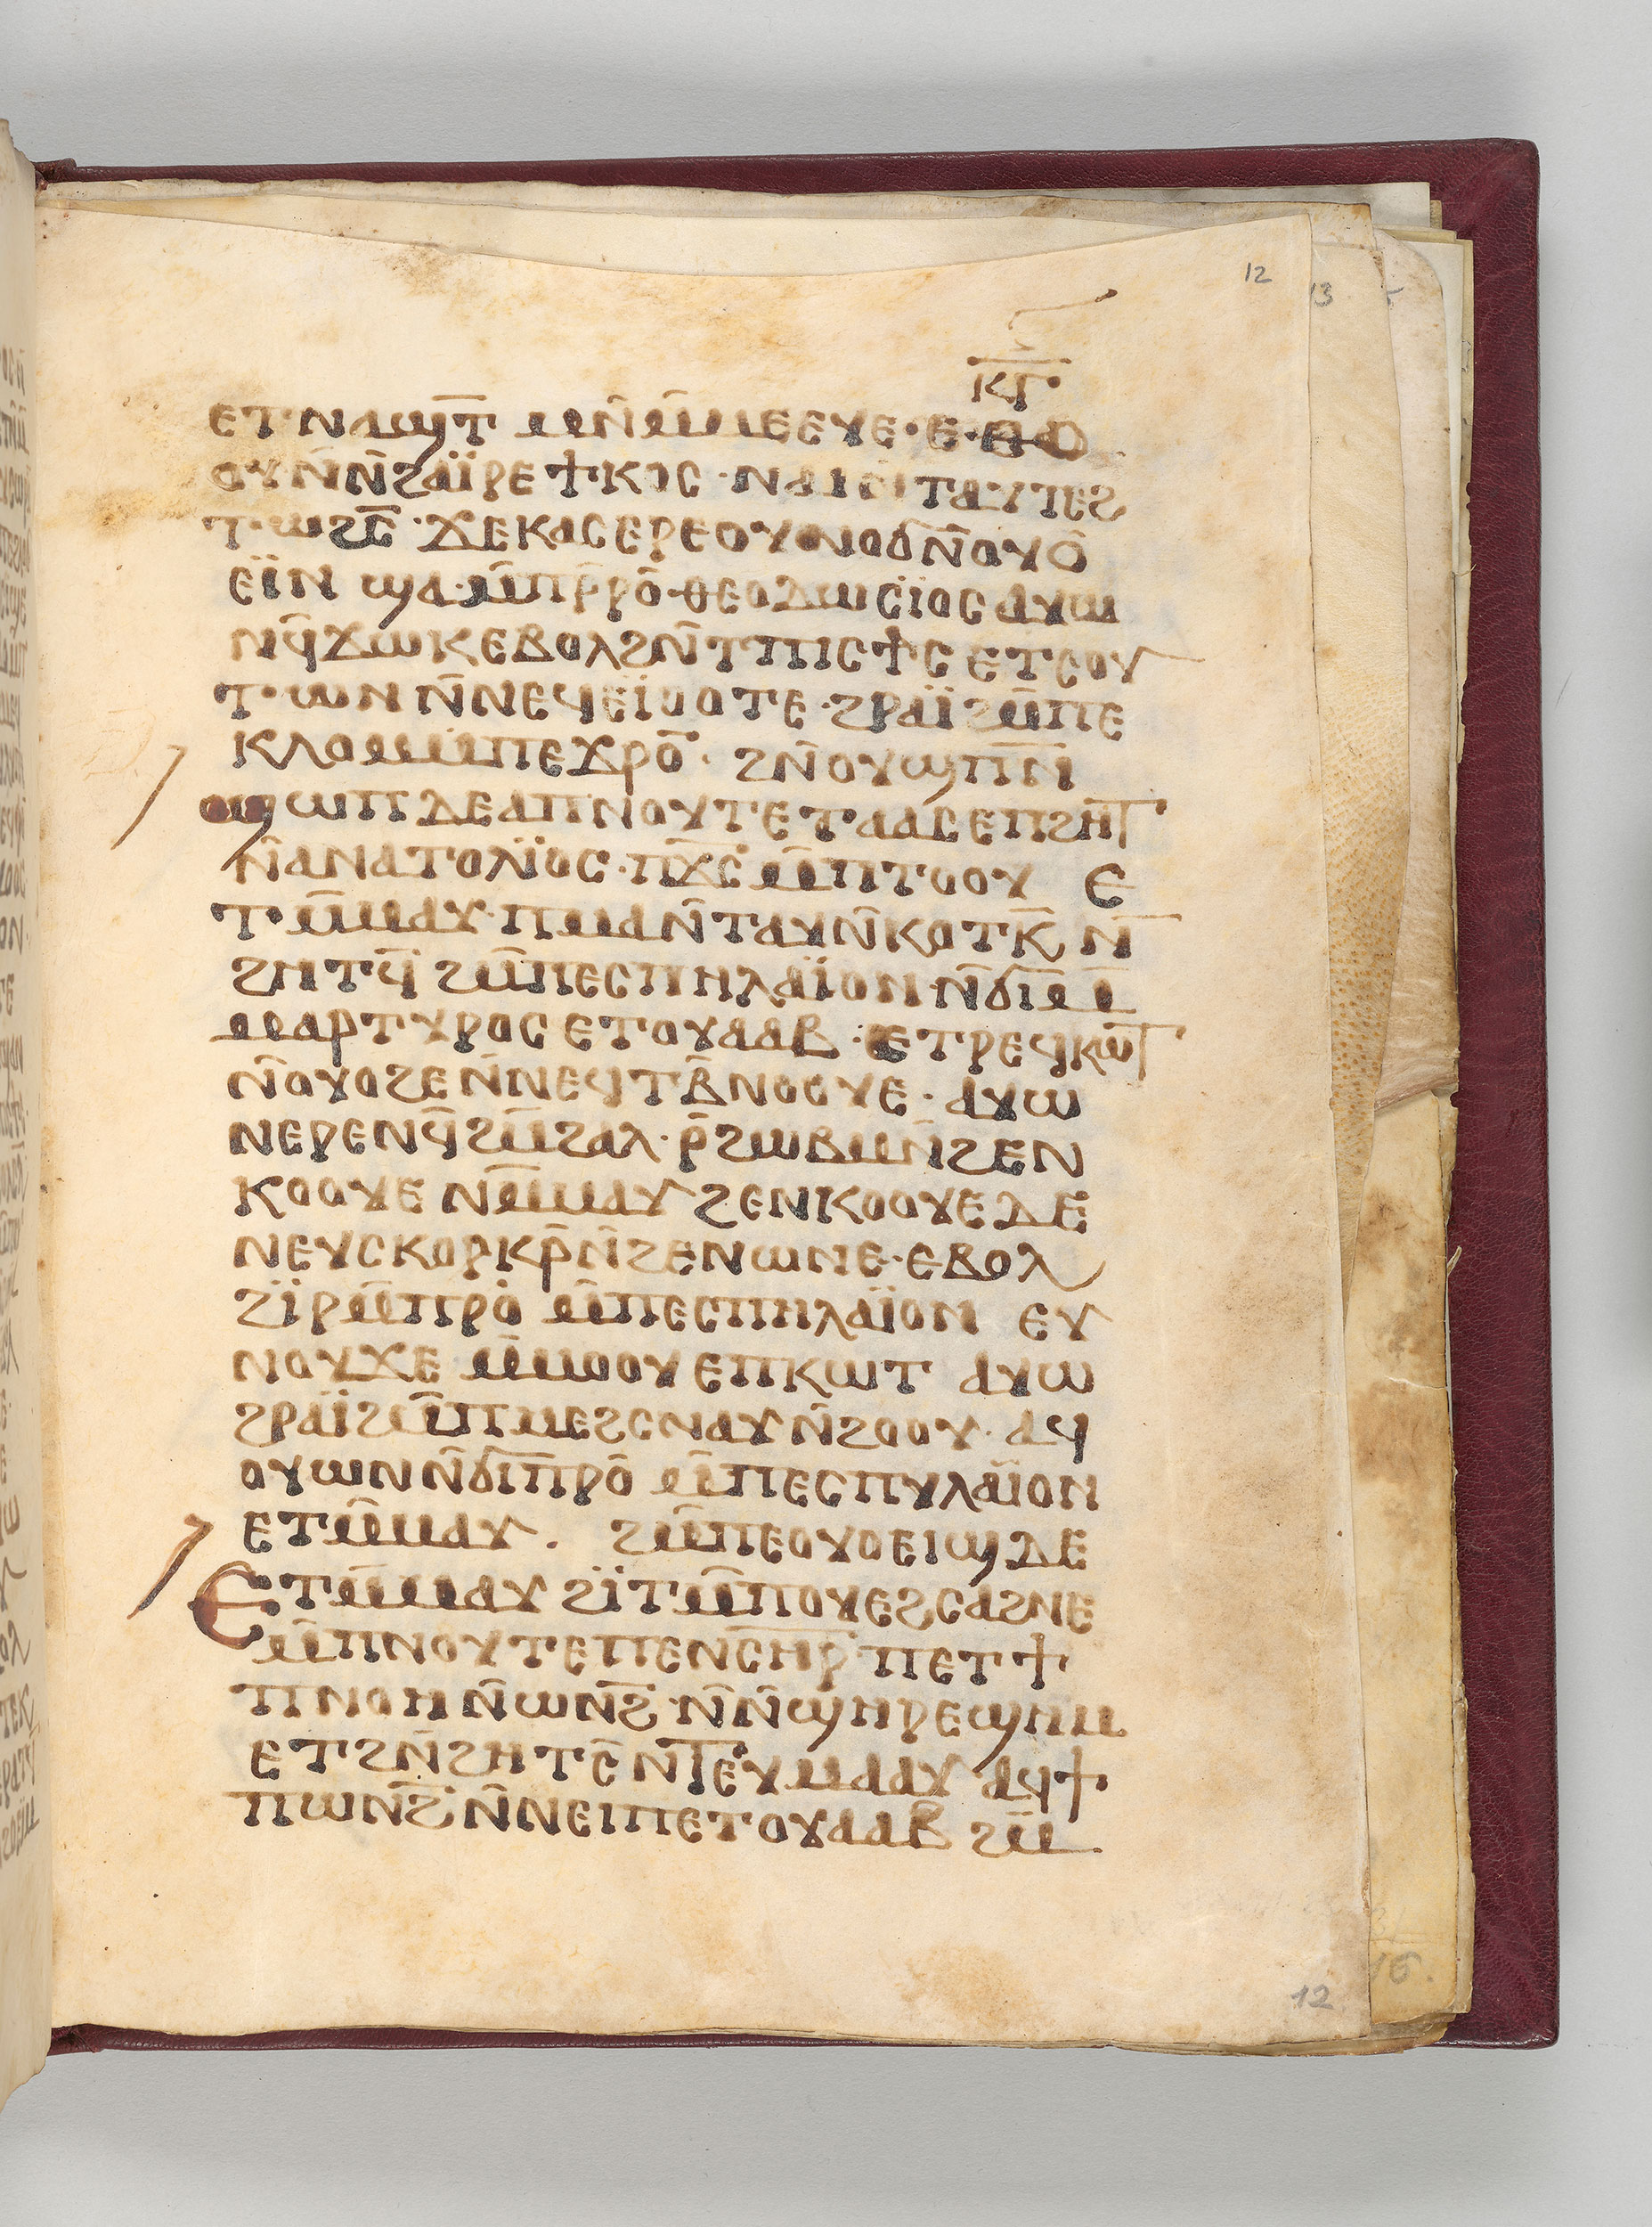 12
13
ⲕⲅ̅
ⲉⲧⲛⲁϣⲧ̅ ⲙⲛ̅ⲙ̅ⲙⲉⲉⲩⲉ· ⲉ·ⲃⲟ
ⲟⲩⲛ̅ⲛ̅ϩⲁⲓ̈ⲣⲉϯⲕⲟⲥ· ⲛⲁⲓ ⲛ̅ⲧⲁⲩⲡⲉϩ
ⲧ·ⲱϩⲥ̅· ϫⲉⲕⲁⲥⲉⲣⲉⲟⲩⲛⲟϭⲛ̅ⲟⲩⲟ̅
ⲉⲓ̈ⲛ ϣⲁ·ⲙ̅ⲡⲣ̅ⲣⲟ̅·ⲑⲉⲟⲇⲱⲥⲓ̈ⲟⲥ ⲁⲩⲱ
ⲛϥ̅ϫⲱⲕⲉⲃⲟⲗϩⲛ̅ⲧⲡⲓⲥϯⲥ ⲉⲧⲥⲟⲩ
ⲧ·ⲱⲛ ⲛ̅ⲛⲉϥⲉⲓ̈ⲟⲟⲧⲉ· ϩⲣⲁⲓ̈ ϩⲙ̅ⲡⲉ
ⲕⲗⲟⲙⲙ̅ⲡⲉϫⲣⲟ̅· ϩⲛ̅ⲟⲩϣⲡⲛ̅
ϣⲱⲡ ⲇⲉⲁⲡⲛⲟⲩⲧ·ⲉ ⲧⲁⲁⲥ ⲉⲡϩⲏⲧ̅
ⲛ̅ⲁⲛⲁⲧⲟⲗⲓ̈ⲟⲥ·ⲡϫ̅ⲥ̅ ⲙ̅ⲡⲧⲟⲟⲩ ⲉ
ⲧ·ⲙ̅ⲙⲁⲩ·ⲡⲙⲁⲛ̅ⲧⲁⲩⲛ̅ⲕⲟⲧⲕ̅ ⲛ̅
ϩⲏⲧϥ̅ ϩⲙ̅ⲡⲉⲥⲡⲏⲗⲁⲓ̈ⲟⲛ·ⲛ̅ϭⲓⲙ̅
ⲙⲁⲣⲧⲩⲣⲟⲥ ⲉⲧⲟⲩⲁⲁⲃ· ⲉⲧⲣⲉϥⲕⲱⲧ̅
ⲛ̅ⲟⲩⲟϩⲉ ⲛ̅ⲛⲉϥⲧⲃ̅ⲛⲟⲟⲩⲉ· ⲁⲩⲱ
ⲛⲉⲣⲉⲛϥ̅ϩⲙ̅ϩⲁⲗ·ⲣ̅ϩⲱⲃⲙⲛ̅ϩⲉⲛ
ⲕⲟⲟⲩⲉ ⲛⲙ̅ⲙⲁⲩ ϩⲉⲛⲕⲟⲟⲩⲉⲇⲉ
ⲛⲉⲩⲥⲕⲟⲣⲕⲣ̅ⲛ̅ϩⲉⲛⲱⲛⲉ·ⲉⲃⲟⲗ
ϩⲓ̈ⲣⲙ̅ⲡⲣⲟ̅ ⲙ̅ⲡⲉⲥⲡⲏⲗⲁⲓ̈ⲟⲛ ⲉⲩ
ⲛⲟⲩϫⲉ ⲙ̅ⲙⲟⲟⲩ ⲉⲡⲕⲱⲧ ⲁⲩⲱ
ϩⲣⲁⲓ̈ ϩⲙ̅ⲡⲙⲉϩⲥⲛⲁⲩ ⲛ̅ϩⲟⲟⲩ· ⲁϥ
ⲟⲩⲱⲛ ⲛ̅ϭⲓⲡⲣⲟ̅ ⲙ̅ⲡⲉⲥⲡⲩⲗⲁⲓ̈ⲟⲛ
ⲉⲧⲙ̅ⲙⲁⲩ· ϩⲙ̅ⲡⲉⲟⲩⲟⲉⲓϣⲇⲉ
ⲉⲧ·ⲙ̅ⲙⲁⲩ ϩⲓ̈ⲧⲙ̅ⲡⲟⲩⲉϩⲥⲁϩⲛⲉ
ⲙ̅ⲡⲛⲟⲩⲧⲉ ⲡⲉⲛⲥ̅ⲏ̅ⲣ̅ ⲡⲉⲧϯ
ⲡⲛⲟⲏ ⲛ̅ⲱⲛϩ̅·ⲛ̅ⲛ̅ϣⲏⲣⲉϣⲏⲙ
ⲉⲧϩⲛ̅ϩⲏⲧⲥ̅ ⲛ̅ⲧⲉⲩⲙⲁⲁⲩ ⲁϥϯ
ⲡⲱⲛϩ̅ ⲛ̅ⲛⲉⲓⲡⲉⲧⲟⲩⲁⲁⲃ ϩⲙ̅
16.
12